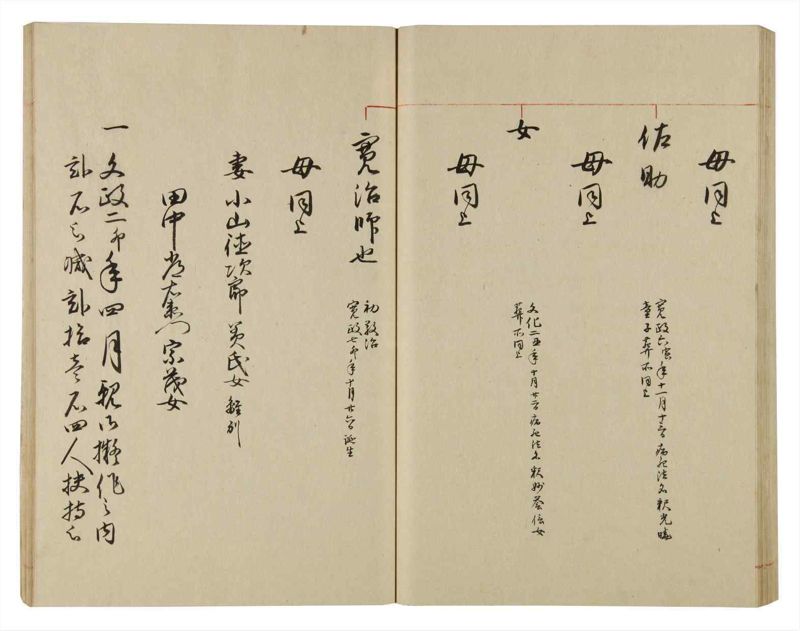 母同上
佐助
寛政六寅年十一月十三日病死法名釈光暁
童子葬所同上
母同上
女
文化二丑年十月廿日病死法名釈妙蓉信女
葬所同上
母同上
寛治師也
初敬治
寛政七卯年十月廿六日誕生
母同上
妻小山徳次郎 英氏女 離別
田中 右衛門宗茂女
一文政二卯年四月 擬作之内
弐百石被減弐拾壱石四人扶持